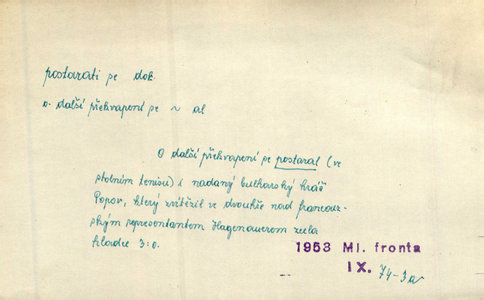 postarati se dok.
o. další překvapení se ~ al
O další překvapení se postaral (ve
stolním tenisu) i nadaný bulharský hráč
Popov, který zvítězil ve dvouhře nad francouz-
ským representantem Hagenauerem zcela
hladce 3:0.
1953 Ml. fronta
IX. 74-3a